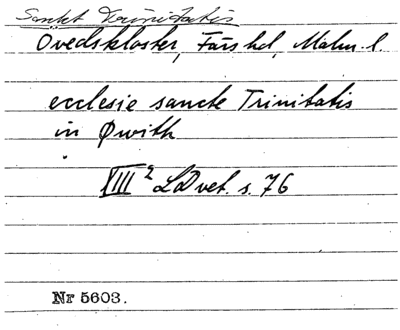 Sankt Trinitatis
Övedskloster, Färs hd, Malm. l.
ecclesie sancte Trinitatis
in Øwith
XIII² LDvet. s. 76
Nr 5603.